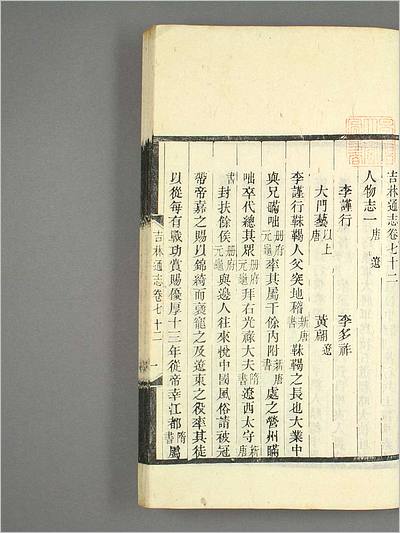 吉林通志卷七十二
人物志一 唐 遼
李謹行 李多祚
大門藝 以上唐 黃翩 遼
李謹行靺鞨人父突地稽 新唐書 靺鞨之長也大業中
與兄瞞咄 册府元龜 率其屬千餘內附 新唐書 處之營州瞞
咄卒代總其眾 册府元龜 拜右光祿大夫 隋書 遼西太守 新唐
書 封扶餘侯 册府元龜 與邊人往來悅中國風俗請被冠
帶帝嘉之賜以錦綺而褒寵之及遼東之役率其徒
以從每有戰功賞賜優厚十三年從帝幸江都 隋書 屬
吉林通志卷七十二 一